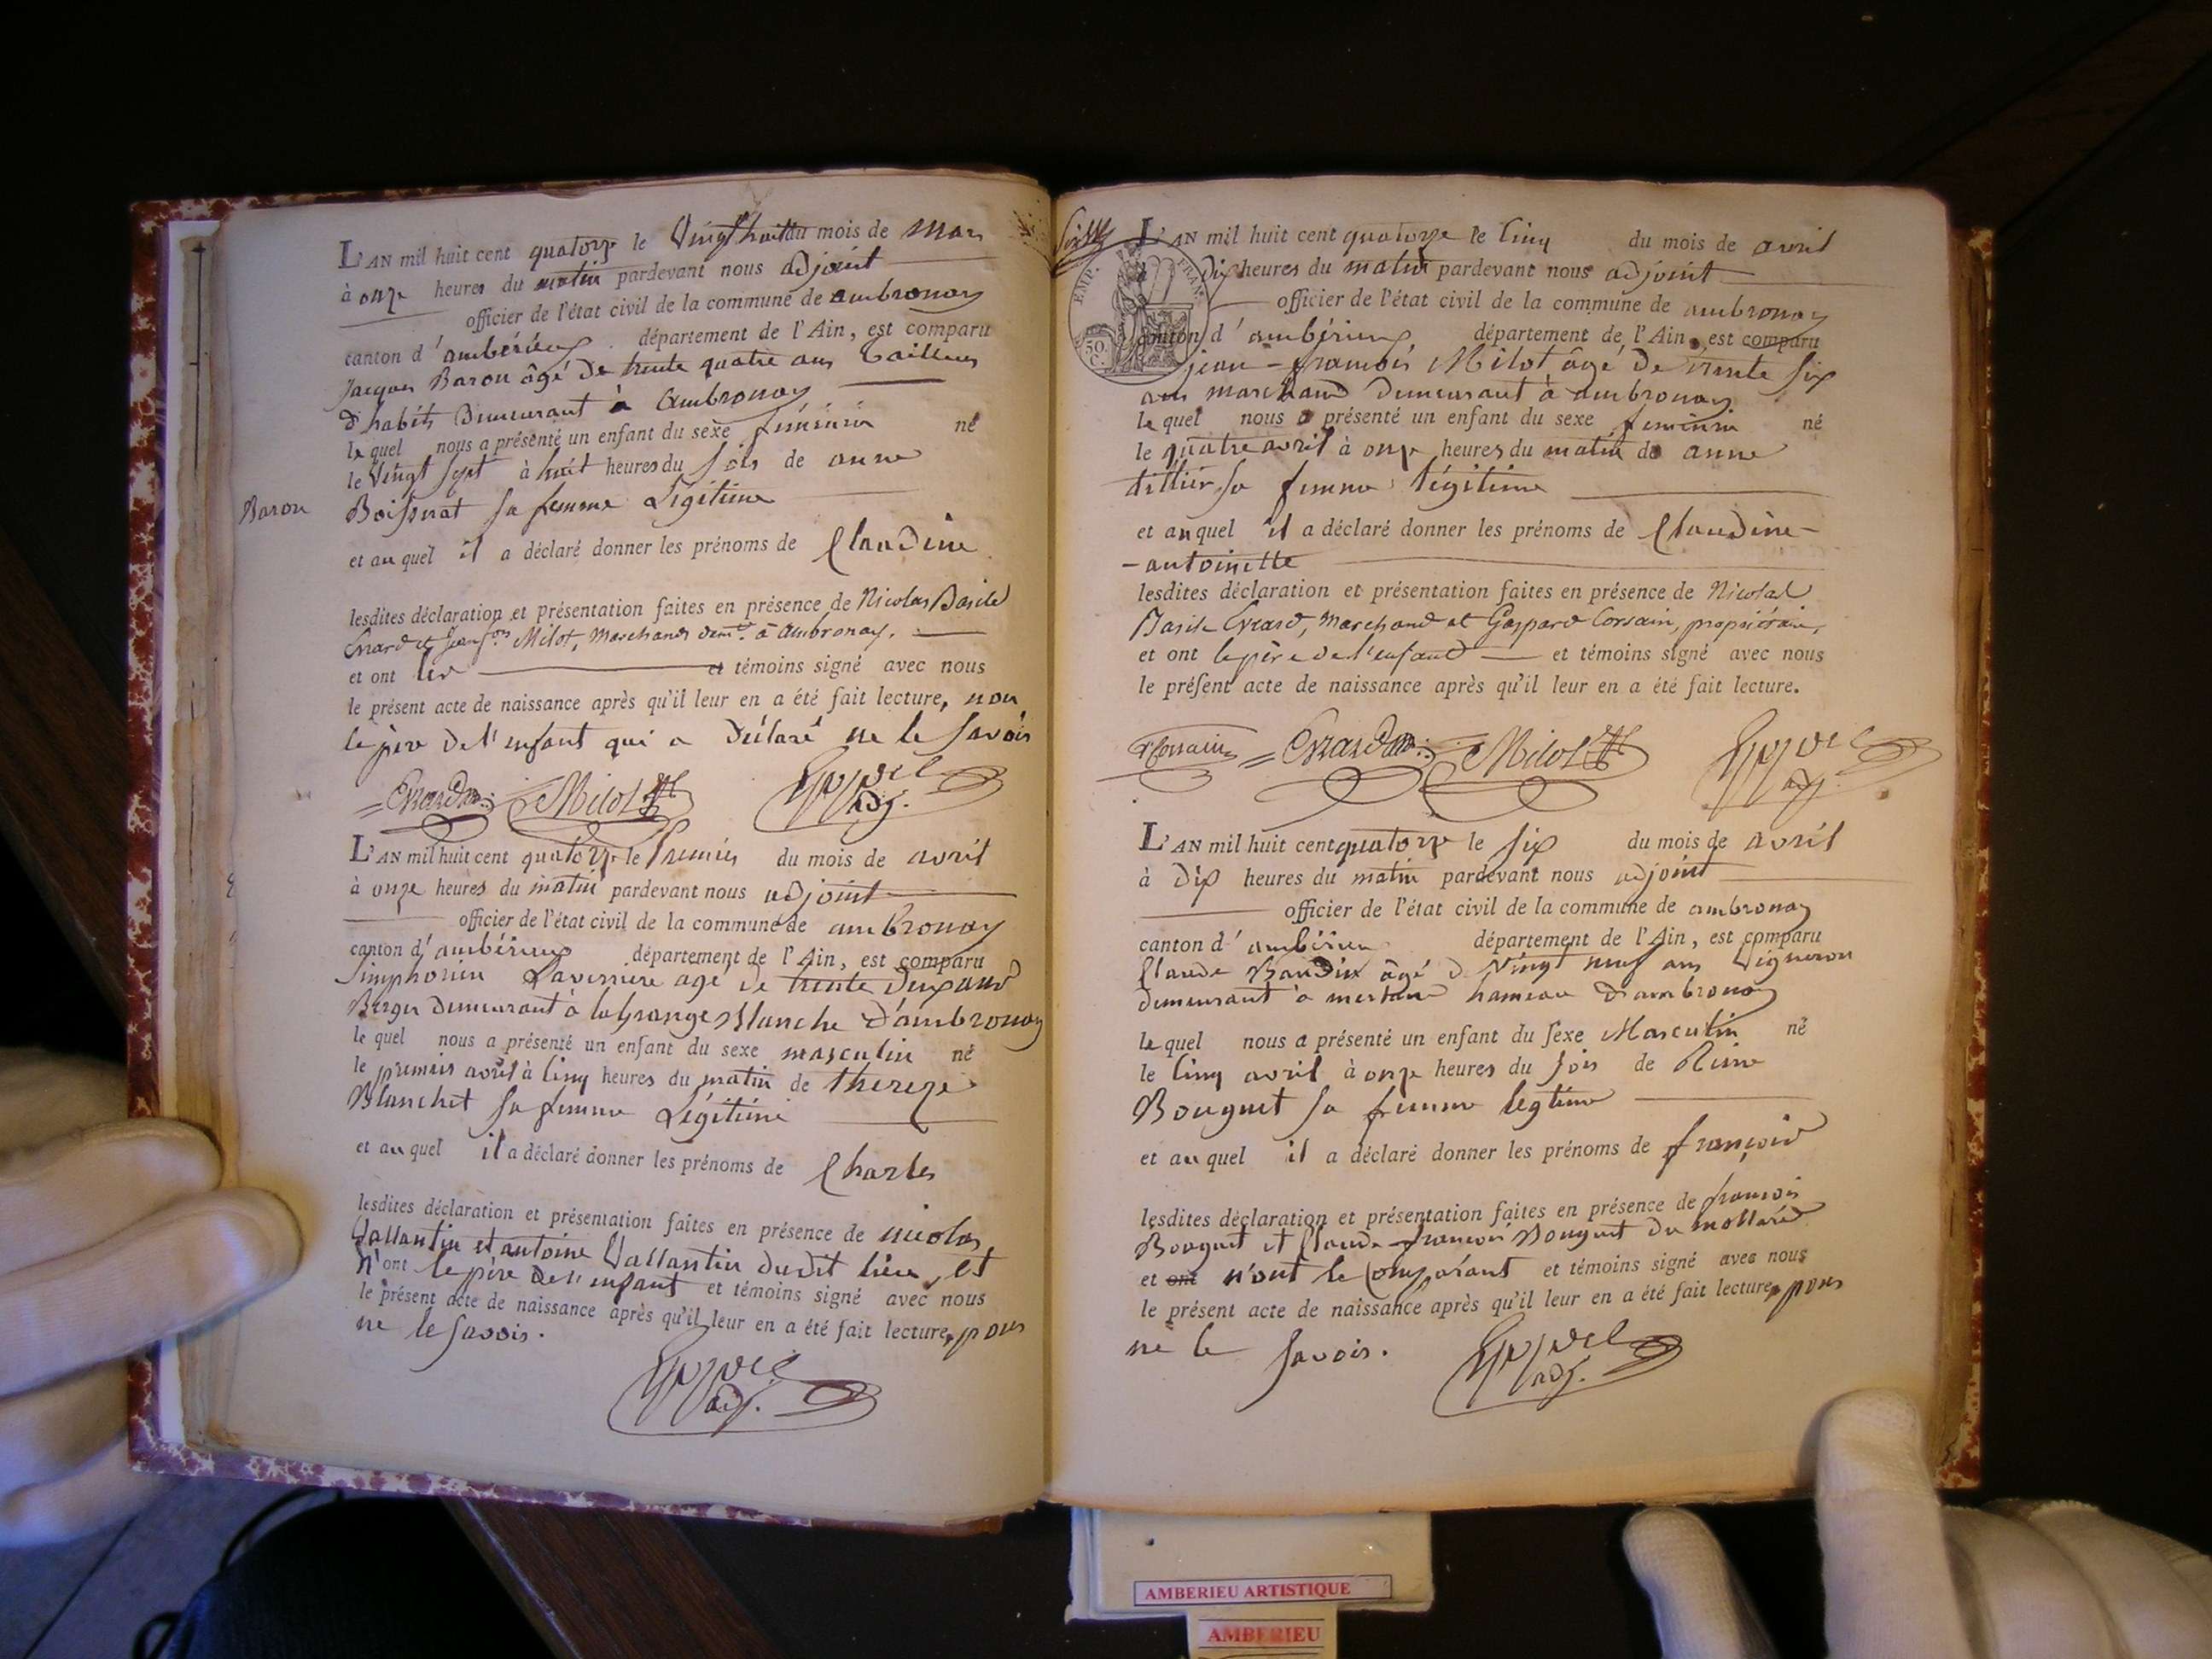 L'AN mil huit cent quatorze le vingt huit du mois de mars
à onze heures du matin pardevant nous adjoint
officier de l'état civil de la commune de ambronay
canton d'ambérieux département de l'Ain, est comparu
Jacques Baron âgé de trente quatre ans tailleur
d'habits demeurant à Ambronay
lequel nous a présenté un enfant du sexe féminin né
le vingt sept à huit heures du soir de anne
Baron
Boisserat sa femme Légitime
et au quel il a déclaré donner les prénoms de Claudine
lesdites déclaration et présentation faites en présence de Nicolas Basile
Evrard et Jean fois Milot, Marchands demt. à Ambronay.
et ont les et témoins signé avec nous
le présent acte de naissance après qu'il leur en a été fait lecture, non
le père de l'enfant qui a déclaré ne le savoir
Evrard Milot adj.
L'AN mil huit cent quatorze le Premier du mois de avril
à onze heures du matin pardevant nous adjoint
officier de l'état civil de la commune de ambronay
canton d'ambérieux département de l'Ain, est comparu
Simphorien Laverriere agé de trente deux ans
Berger demeurant à la Grange Blanche d'ambronay
le quel nous a présenté un enfant du sexe masculin né
le premier avril à cinq heures du matin de thereze
Blanchet sa femme Légitime
et au quel il a déclaré donner les prénoms de Charles
lesdites déclaration et présentation faites en présence de nicolas
Vallantin et antoine Vallantin dudit lieu, et
n'ont le père de l'enfant et témoins signé avec nous
le présent acte de naissance après qu'il leur en a été fait lecture, pour
ne le savoir.
adj.
L'AN mil huit cent quatorze le cinq du mois de avril
à dix heures du matin pardevant nous adjoint
EMP. FRAN.
officier de l'état civil de la commune de ambronay
50 C.
canton d'ambérieux département de l'Ain, est comparu
jean-françois Milot âgé de trente six
ans marchand demeurant à ambronay
le quel nous a présenté un enfant du sexe feminin né
le quatre avril à onze heures du matin de anne
tillier sa femme légitime
et au quel il a déclaré donner les prénoms de Claudine-
-antoinette
lesdites déclaration et présentation faites en présence de Nicolas
Basile Evrard, Marchand et Gaspard Corsain, propriétaire,
et ont le père de l'enfant et témoins signé avec nous
le présent acte de naissance après qu'il leur en a été fait lecture.
Corsain Evrard Milot adj.
L'AN mil huit cent quatorze le six du mois de avril
à dix heures du matin pardevant nous adjoint
officier de l'état civil de la commune de ambronay
canton d'ambérieu département de l'Ain, est comparu
Claude Baudin âgé de vingt neuf ans Vigneron
demeurant à merland hameau d'ambronay
le quel nous a présenté un enfant du sexe Masculin né
le cinq avril à onze heures du soir de Reine
Bouguet sa femme legtime
et au quel il a déclaré donner les prénoms de françois
lesdites déclaration et présentation faites en présence de françois
Bouguet et Claude-françois Bouguet du mollard
et ont n'ont le comparant et témoins signé avec nous
le présent acte de naissance après qu'il leur en a été fait lecture, pour
ne le savoir.
adj.
AMBERIEU ARTISTIQUE
AMBERIEU